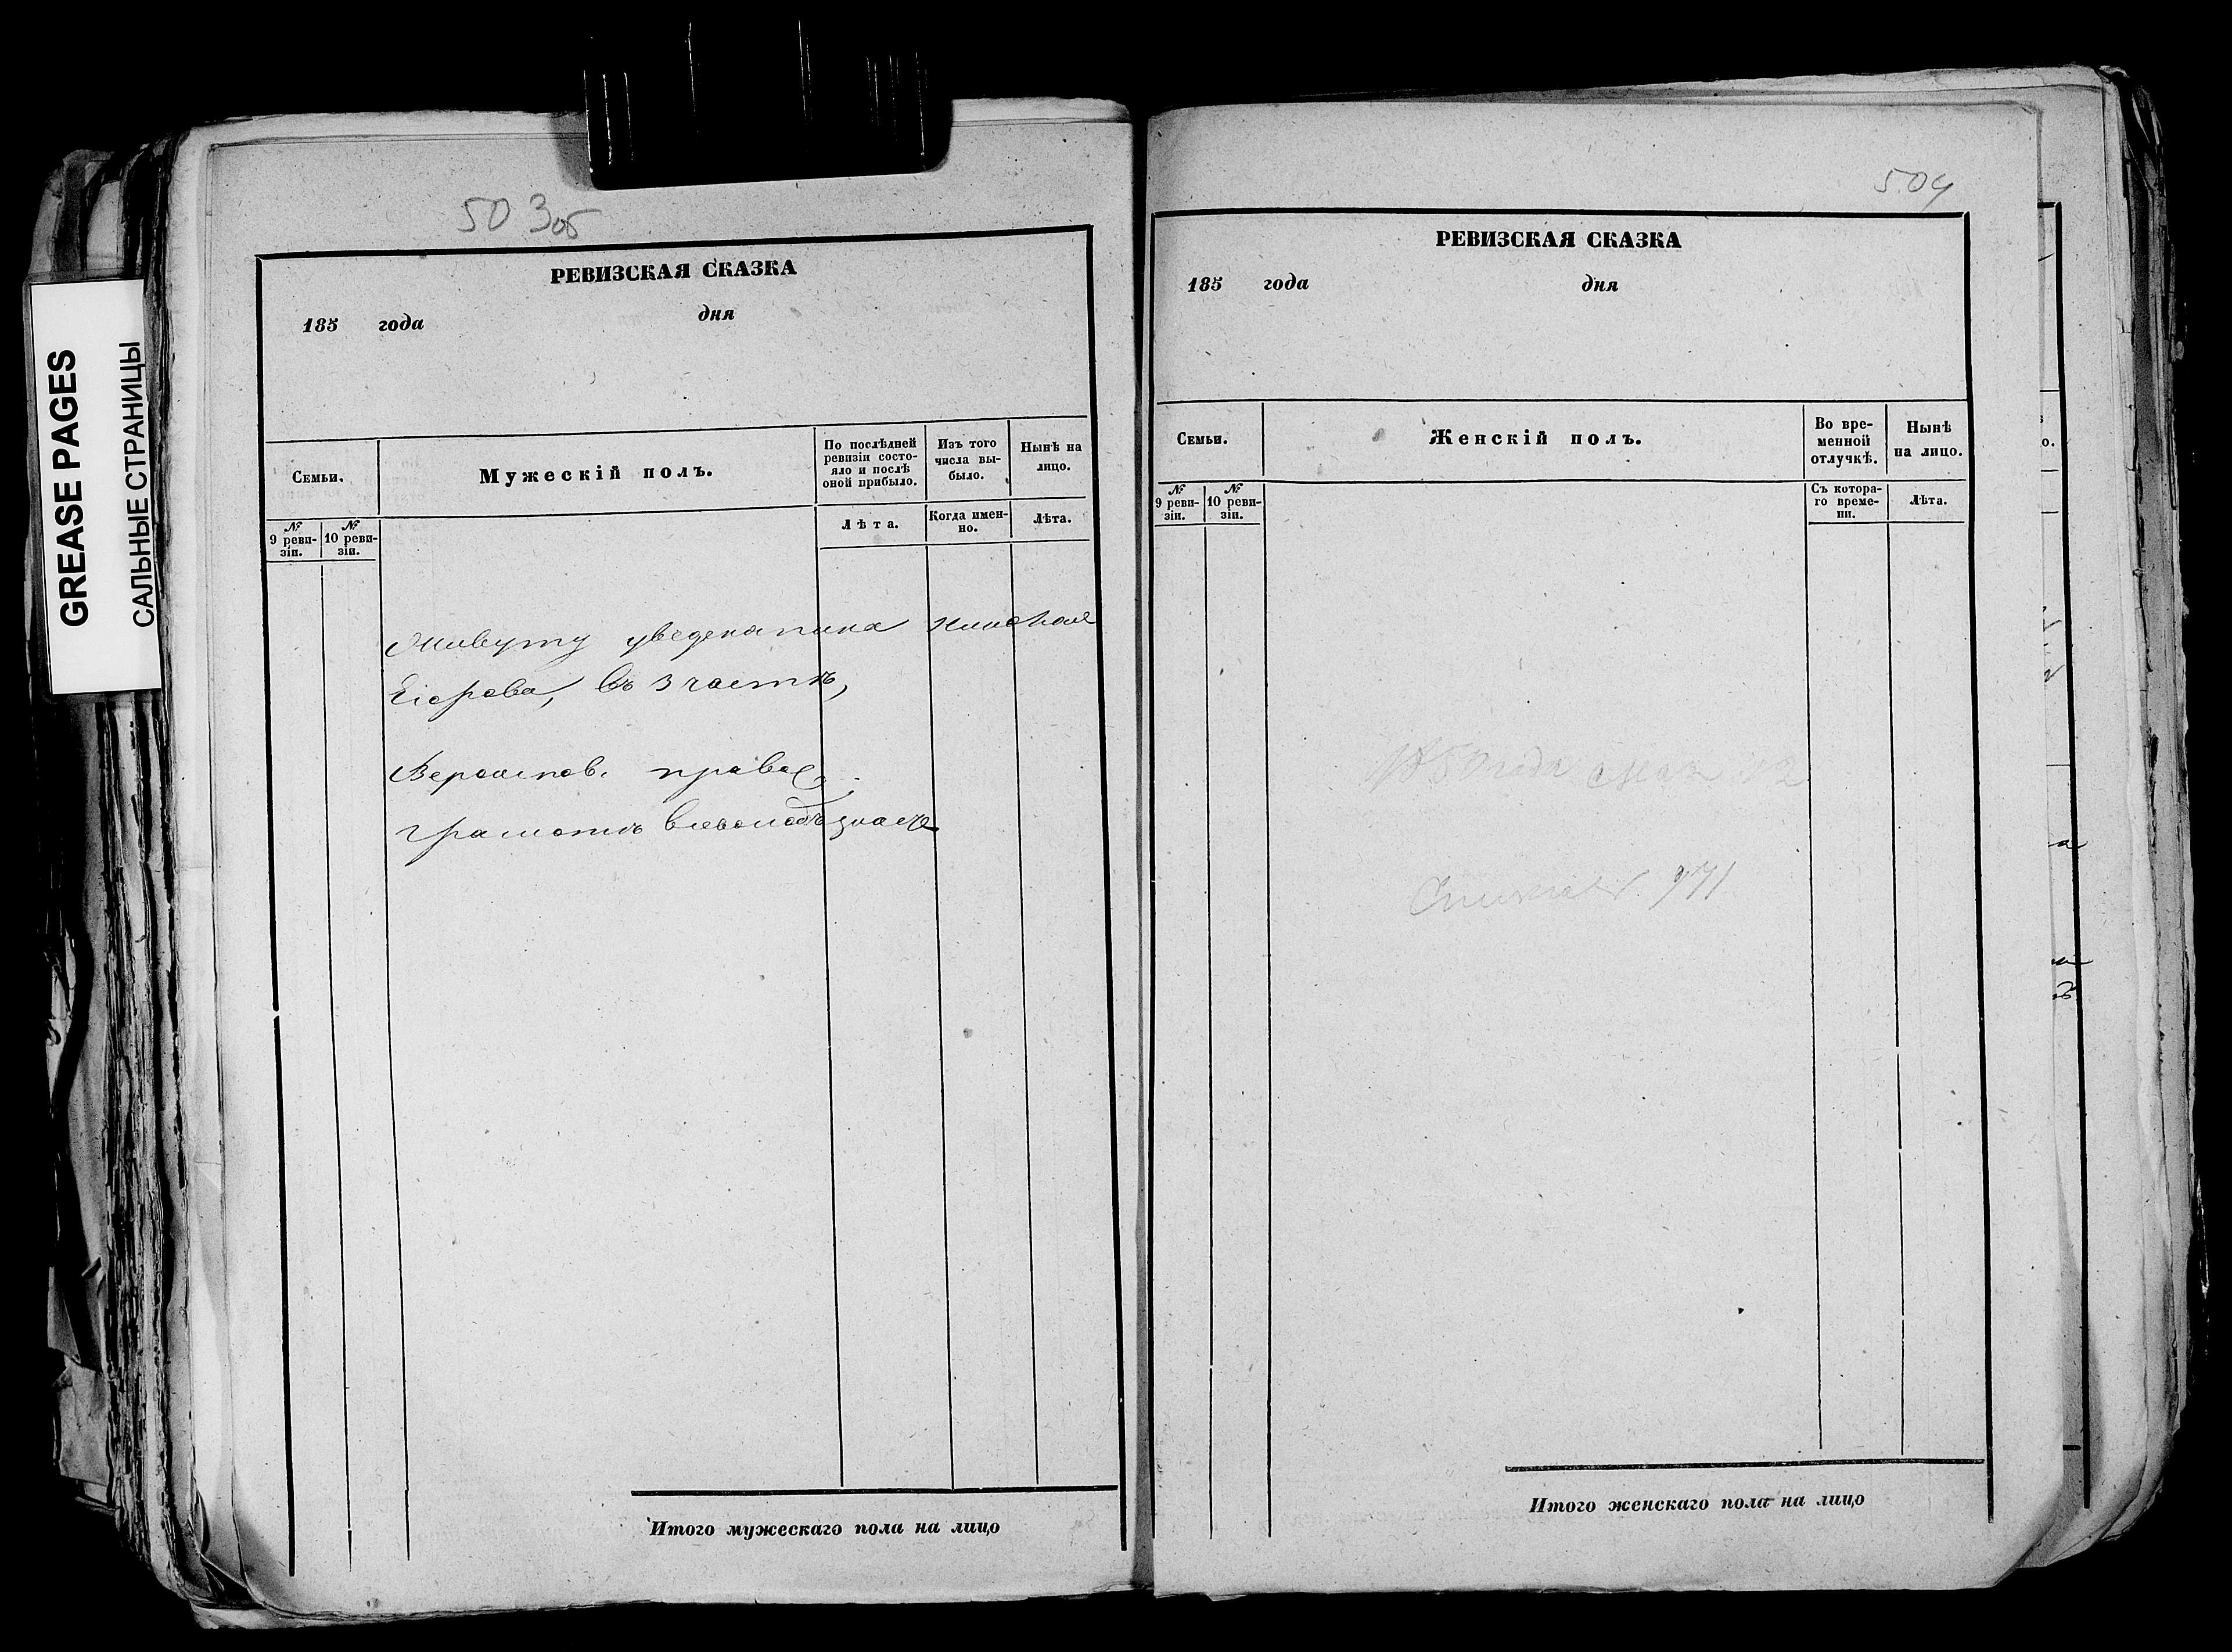 GREASE PAGES
САЛЬНЫЕ СТРАНИЦЫ
503об
РЕВИЗСКАЯ СКАЗКА
185 года дня
Семьи.
Мужескій полъ.
По послѣдней ревизіи состо-
яло и послѣ
оной прибыло.
Изъ того
числа вы-
было.
Нынѣ на
лицо.
№
9 реви-
зіи.
№
10 реви-
зіи.
Лѣта.
Когда имен-
но.
Лѣта.
Живутъ
въ 3 части,
Вероиспов. правос.
грамотѣ знает
Итого мужескаго пола на лицо
504
РЕВИЗСКАЯ СКАЗКА
185 года дня
Семьи.
Женскій полъ.
Во вре-
менной
отлучкѣ.
Нынѣ
на лицо.
№
9 реви-
зіи.
№
10 реви-
зіи.
Съ котора-
го време-
ни.
Лѣта.
1850 года
Итого женскаго пола на лицо